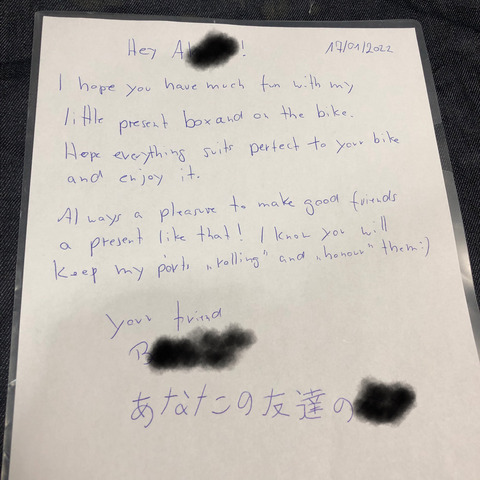 Hey A !
17/01/2022
I hope you have much fun with my
little present box and on the bike.
Hope everything suits perfect to your bike
and enjoy it.
Always a pleasure to make good friends
a present like that! I know you will
keep my parts „rolling" and „honour" them:)
your friend
B
あなたの友達の